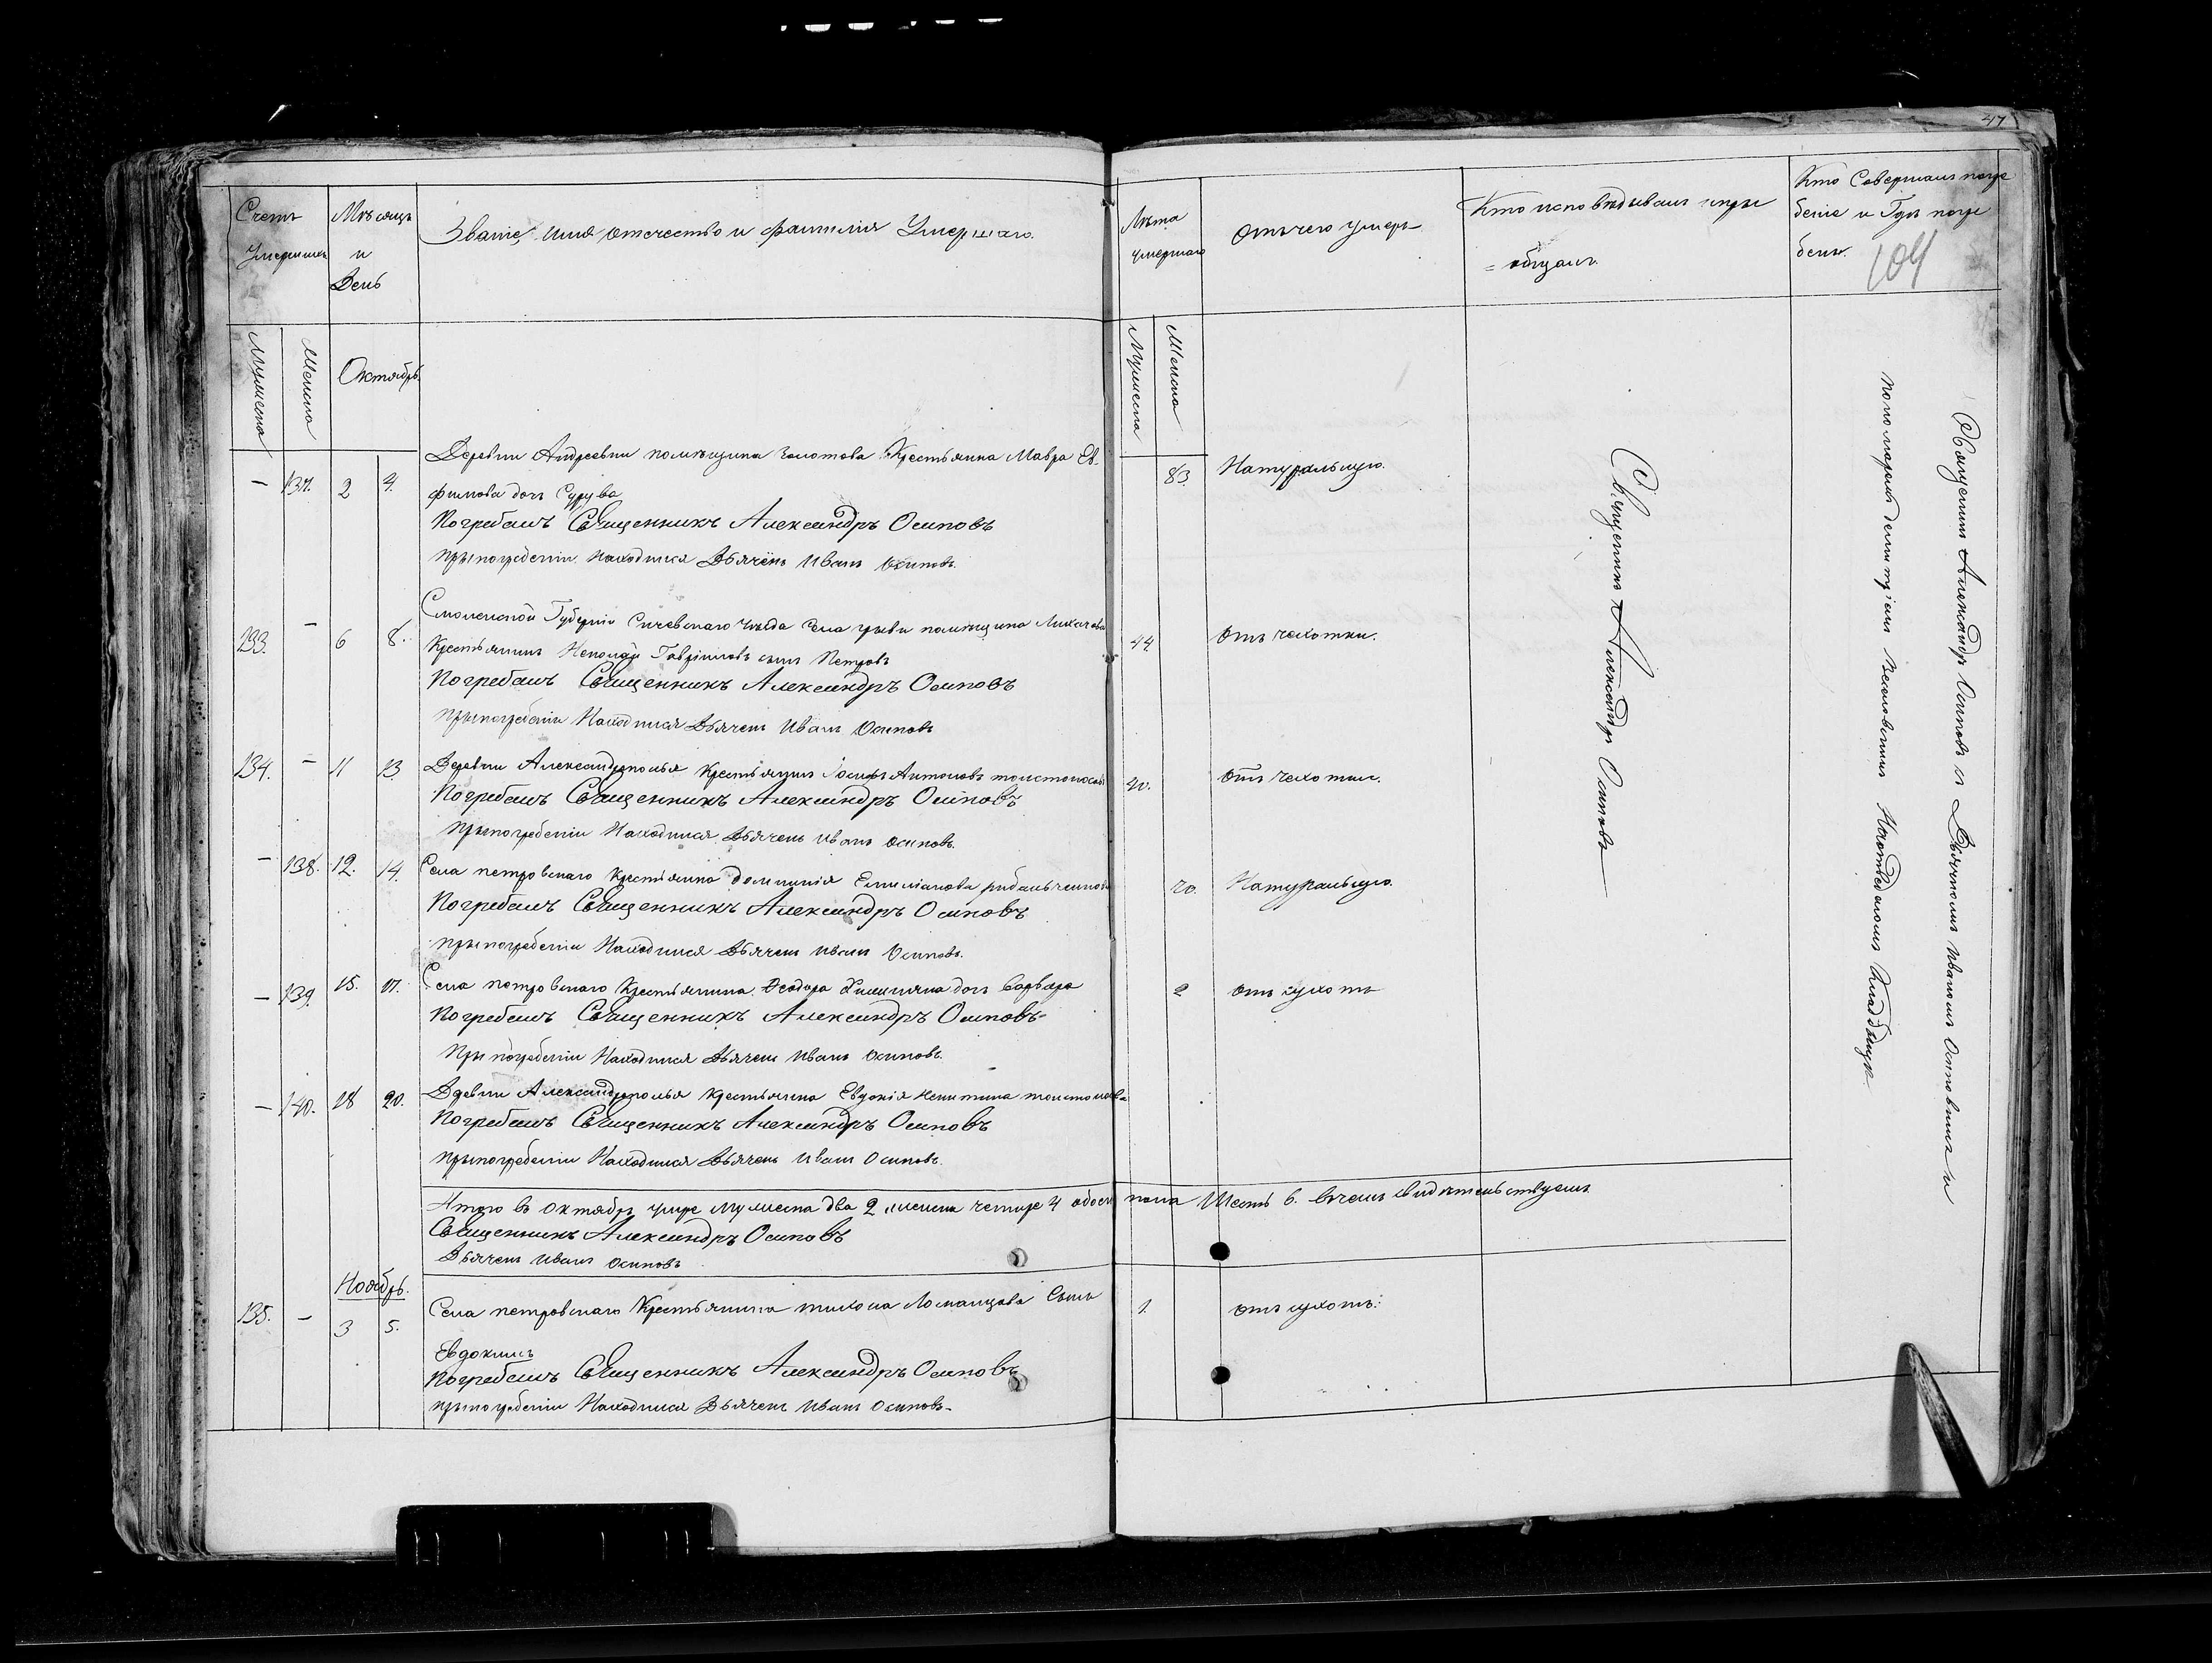 47
Счетъ Умершихъ
Мѣсяцъ и День
Званіе, имя, отечество и фамилія Умершаго.
Лѣта умершаго
Отъ чего умеръ
Кто исповѣдывалъ и прі=
=общалъ.
Кто Совершалъ погре
беніе и Гдѣ погре
бенъ.
104
Мужеска
Женска
Октябрь.
Мужеска
Женска
— 137. 2 4. Деревни Андреевки помѣщика Золотова Крестьянка Мавра Ев- 83. Натурально.
фимова дочь
Погребалъ Священникъ Александръ Осиповъ
при погребеніи Находился Дьячекъ Иванъ Осиповъ.
133. — 6 8. Смоленской Губерніи Сичевскаго уѣзда Села помѣщика Лихачова 44. отъ чахотки.
Крестьянинъ Гавріиловъ сынъ Петровъ
Погребалъ Священникъ Александръ Осиповъ
при погребеніи Находился Дьячекъ Иванъ Осиповъ
134. — 11 13 Деревни Александрополья Крестьянинъ Іосифъ Антоновъ 40. отъ чахотки.
Погребалъ Священникъ Александръ Осиповъ
при погребеніи Находился Дьячекъ Иванъ Осиповъ.
— 138. 12. 14. Села петровскаго Крестьянка Домникія Емиліанова 70. Натурально.
Погребалъ Священникъ Александръ Осиповъ
при погребеніи Находился Дьячекъ Иванъ Осиповъ.
— 139. 15. 17. Села петровскаго Крестьянина Ѳеодора дочь Варвара 2 отъ сухотъ
Погребалъ Священникъ Александръ Осиповъ
При погребеніи Находился Дьячекъ Иванъ Осиповъ.
— 140. 18 20. Александрополья Крестьянка Никитина
Погребалъ Священникъ Александръ Осиповъ
при погребеніи Находился Дьячекъ Иванъ Осиповъ.
Итого въ Октябрѣ умре Мужеска два 2 женска четире 4 обоего пола Шесть 6. въ чемъ свидѣтельствуемъ
Священникъ Александръ Осиповъ
Дьячекъ Иванъ Осиповъ
Ноябрь.
135. — 3 5. Села петровскаго Крестьянина тихона Сынъ 1. отъ сухотъ.
Евдокимъ
Погребалъ Священникъ Александръ Осиповъ
при погребеніи Находился Дьячекъ Иванъ Осиповъ.
Священникъ Александръ Осиповъ
Священникъ Александръ Осиповъ съ Дьячкомъ Иваномъ Осиповымъ и
пономаремъ на отведеномъ Кладбищѣ